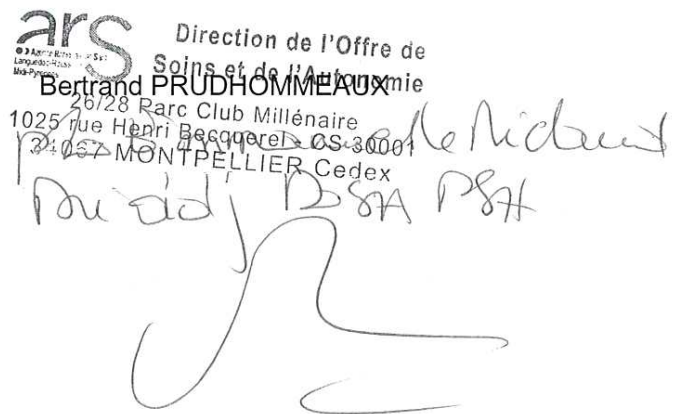 ars
Agence Régionale de Santé
Languedoc-Roussillon
Midi-Pyrénées
Direction de l'Offre de
Soins et de l'Autonomie
Bertrand PRUDHOMMEAUX
26/28 Parc Club Millénaire
1025 rue Henri Becquerel - CS 30001
34067 MONTPELLIER Cedex
DOSA PSH